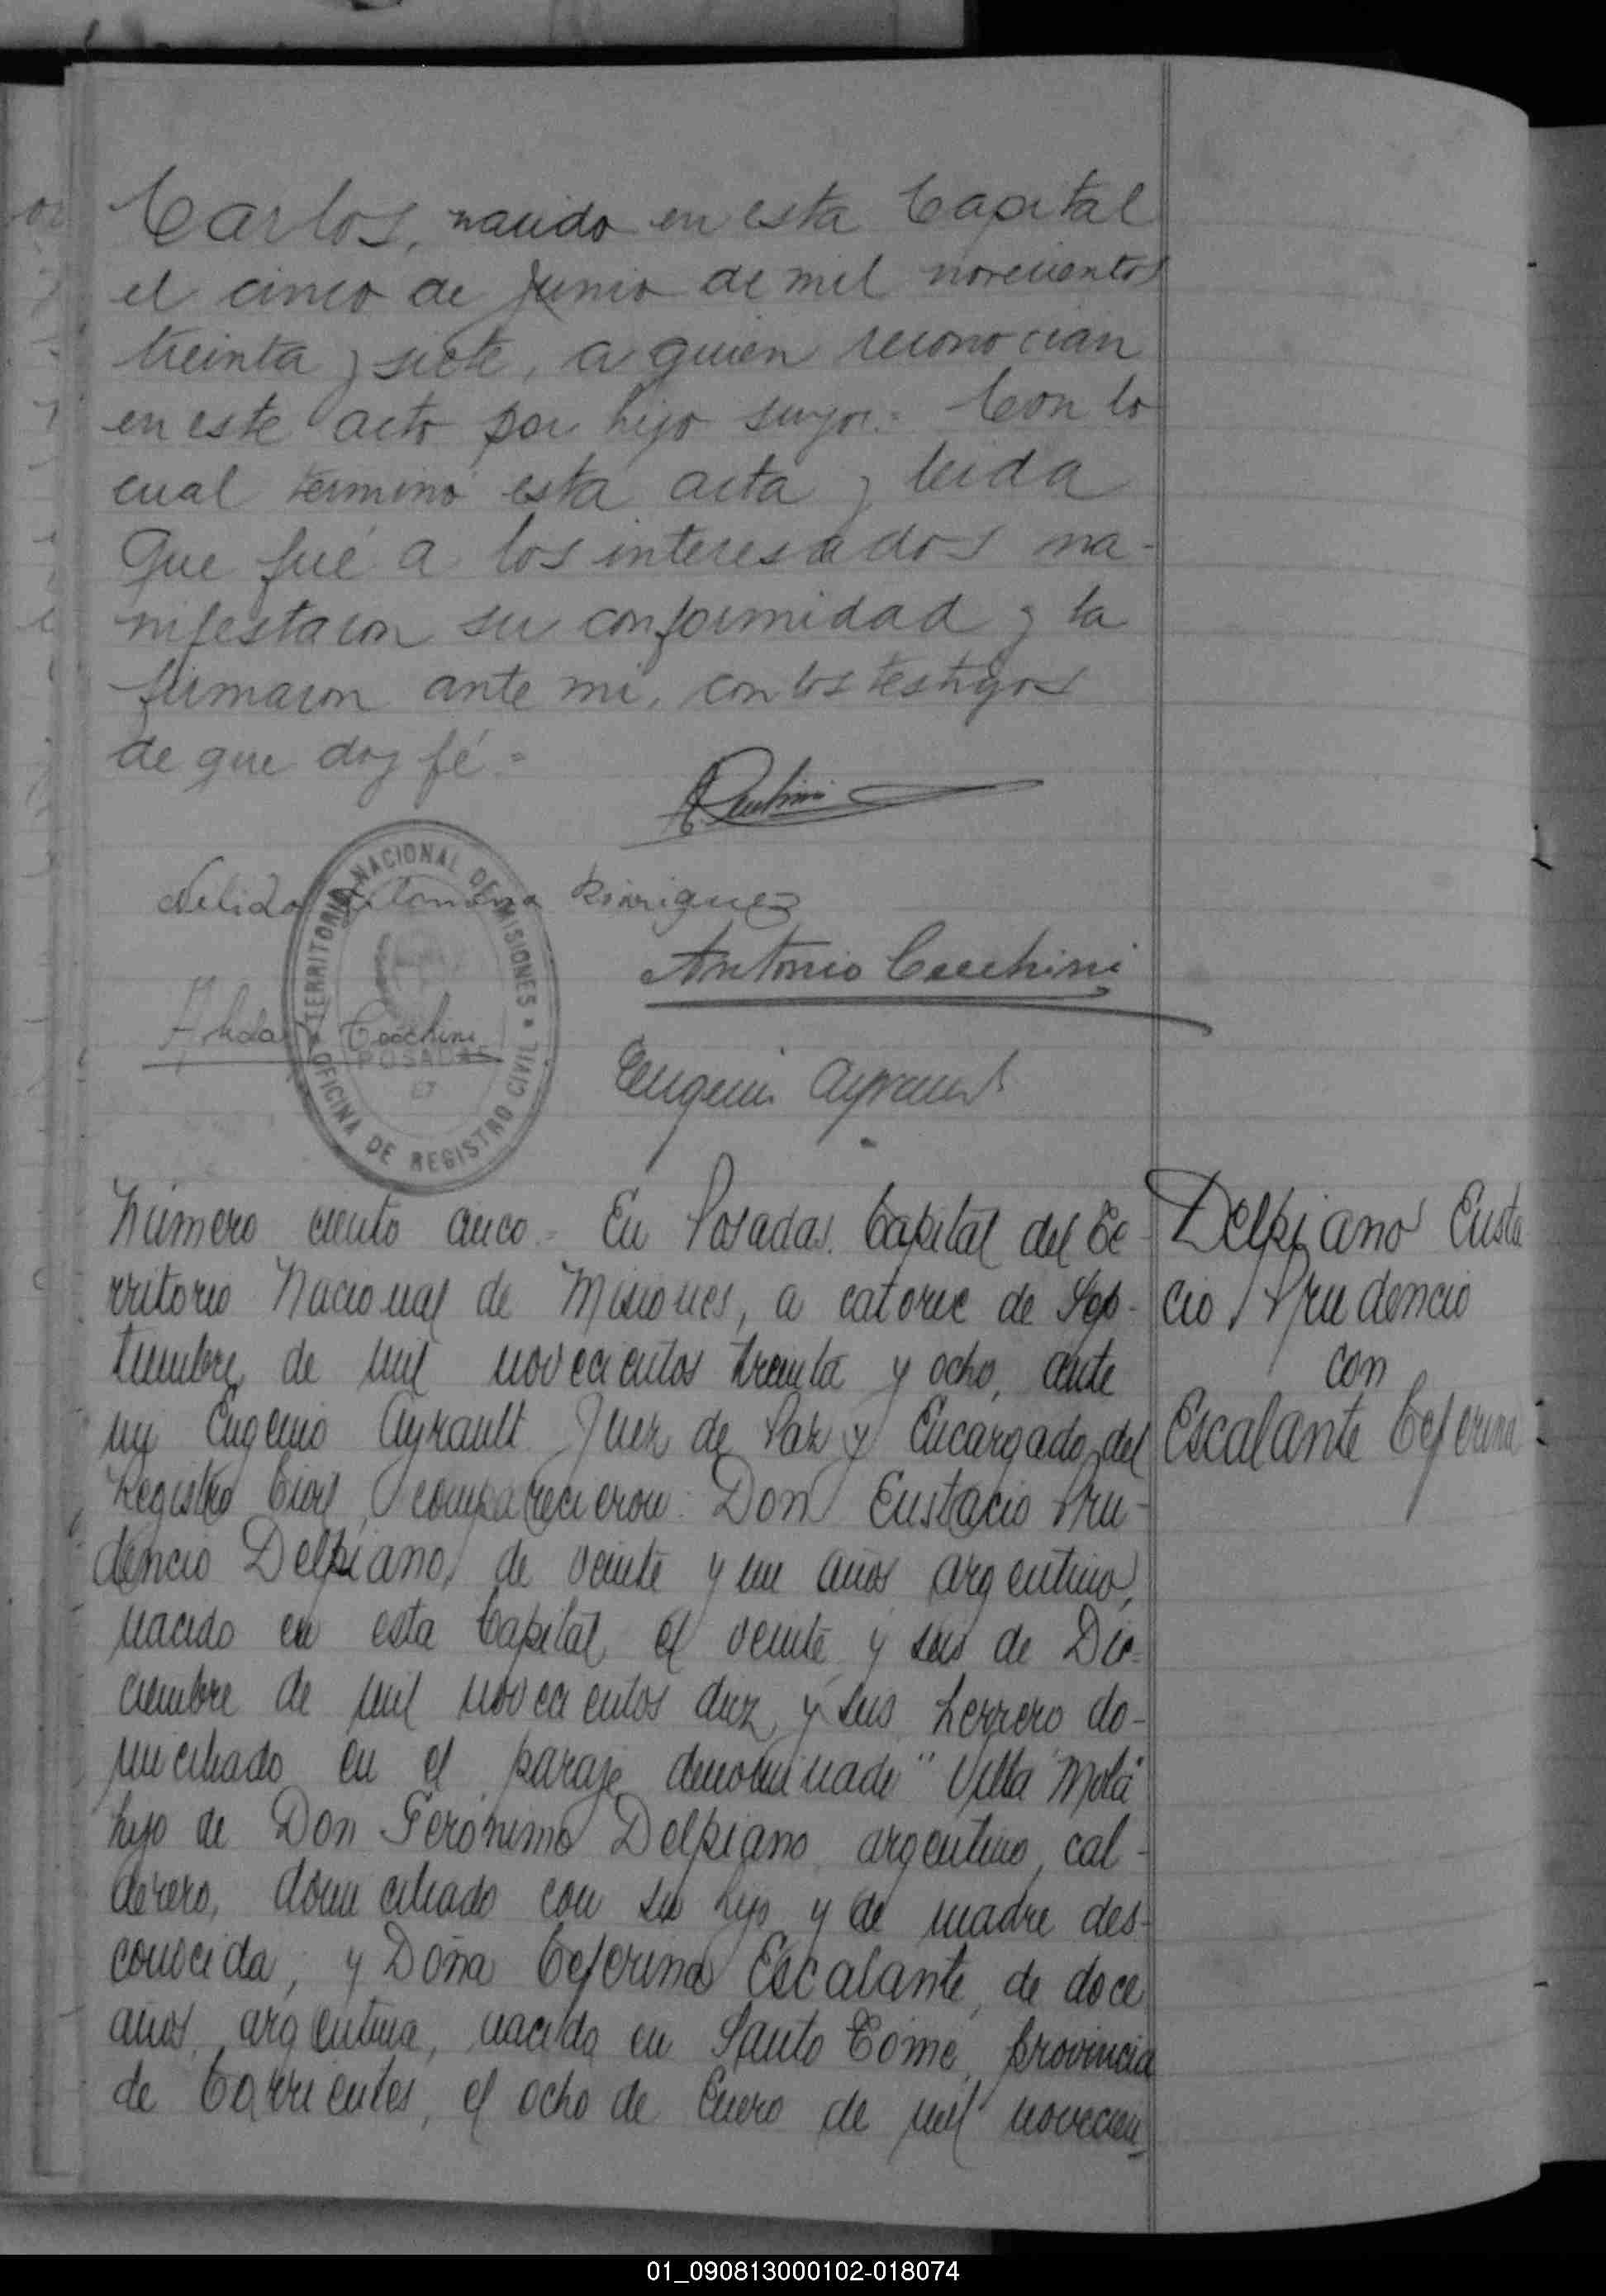 Carlos, nacido en esta Capital
el cinco de Junio de mil novecientos
treinta y siete, a quien reconocian
en este acto por hijo suyo.= Con lo
cual terminó esta acta y leida
que fué a los interesados ma-
nifestaron su conformidad y la
firmaron ante mi, con los testigos
de que doy fé.=
Nelida Rodriguez
TERRITORIO NACIONAL DE MISIONES
Antonio Cecchini
Cecchini
POSADAS
OFICINA DE REGISTRO CIVIL
Eugenio Ayrault
Número ciento cinco = En Posadas, Capital del Te-
rritorio Nacional de Misiones, a catorce de Sep-
tiembre de mil novecientos treinta y ocho, ante
mi Eugenio Ayrault Juez de Paz y Encargado del
Registro Civil, comparecieron: Don Eustacio Pru-
dencio Delpiano, de veinte y un años, argentino,
nacido en esta Capital el veinte y seis de Dic-
ciembre de mil novecientos diez y seis, herrero, do-
miciliado en el paraje denominado "Villa Mola"
hijo de Don Gerónimo Delpiano, argentino, cal-
derero, domiciliado con su hijo y de madre des-
conocida, y Doña Ceferina Escalante, de doce
años, argentina, nacida en Santo Tomé, provincia
de Corrientes, el ocho de Enero de mil novecien-
Delpiano Eusta
cio Prudencio
con
Escalante Ceferina
01_090813000102-018074